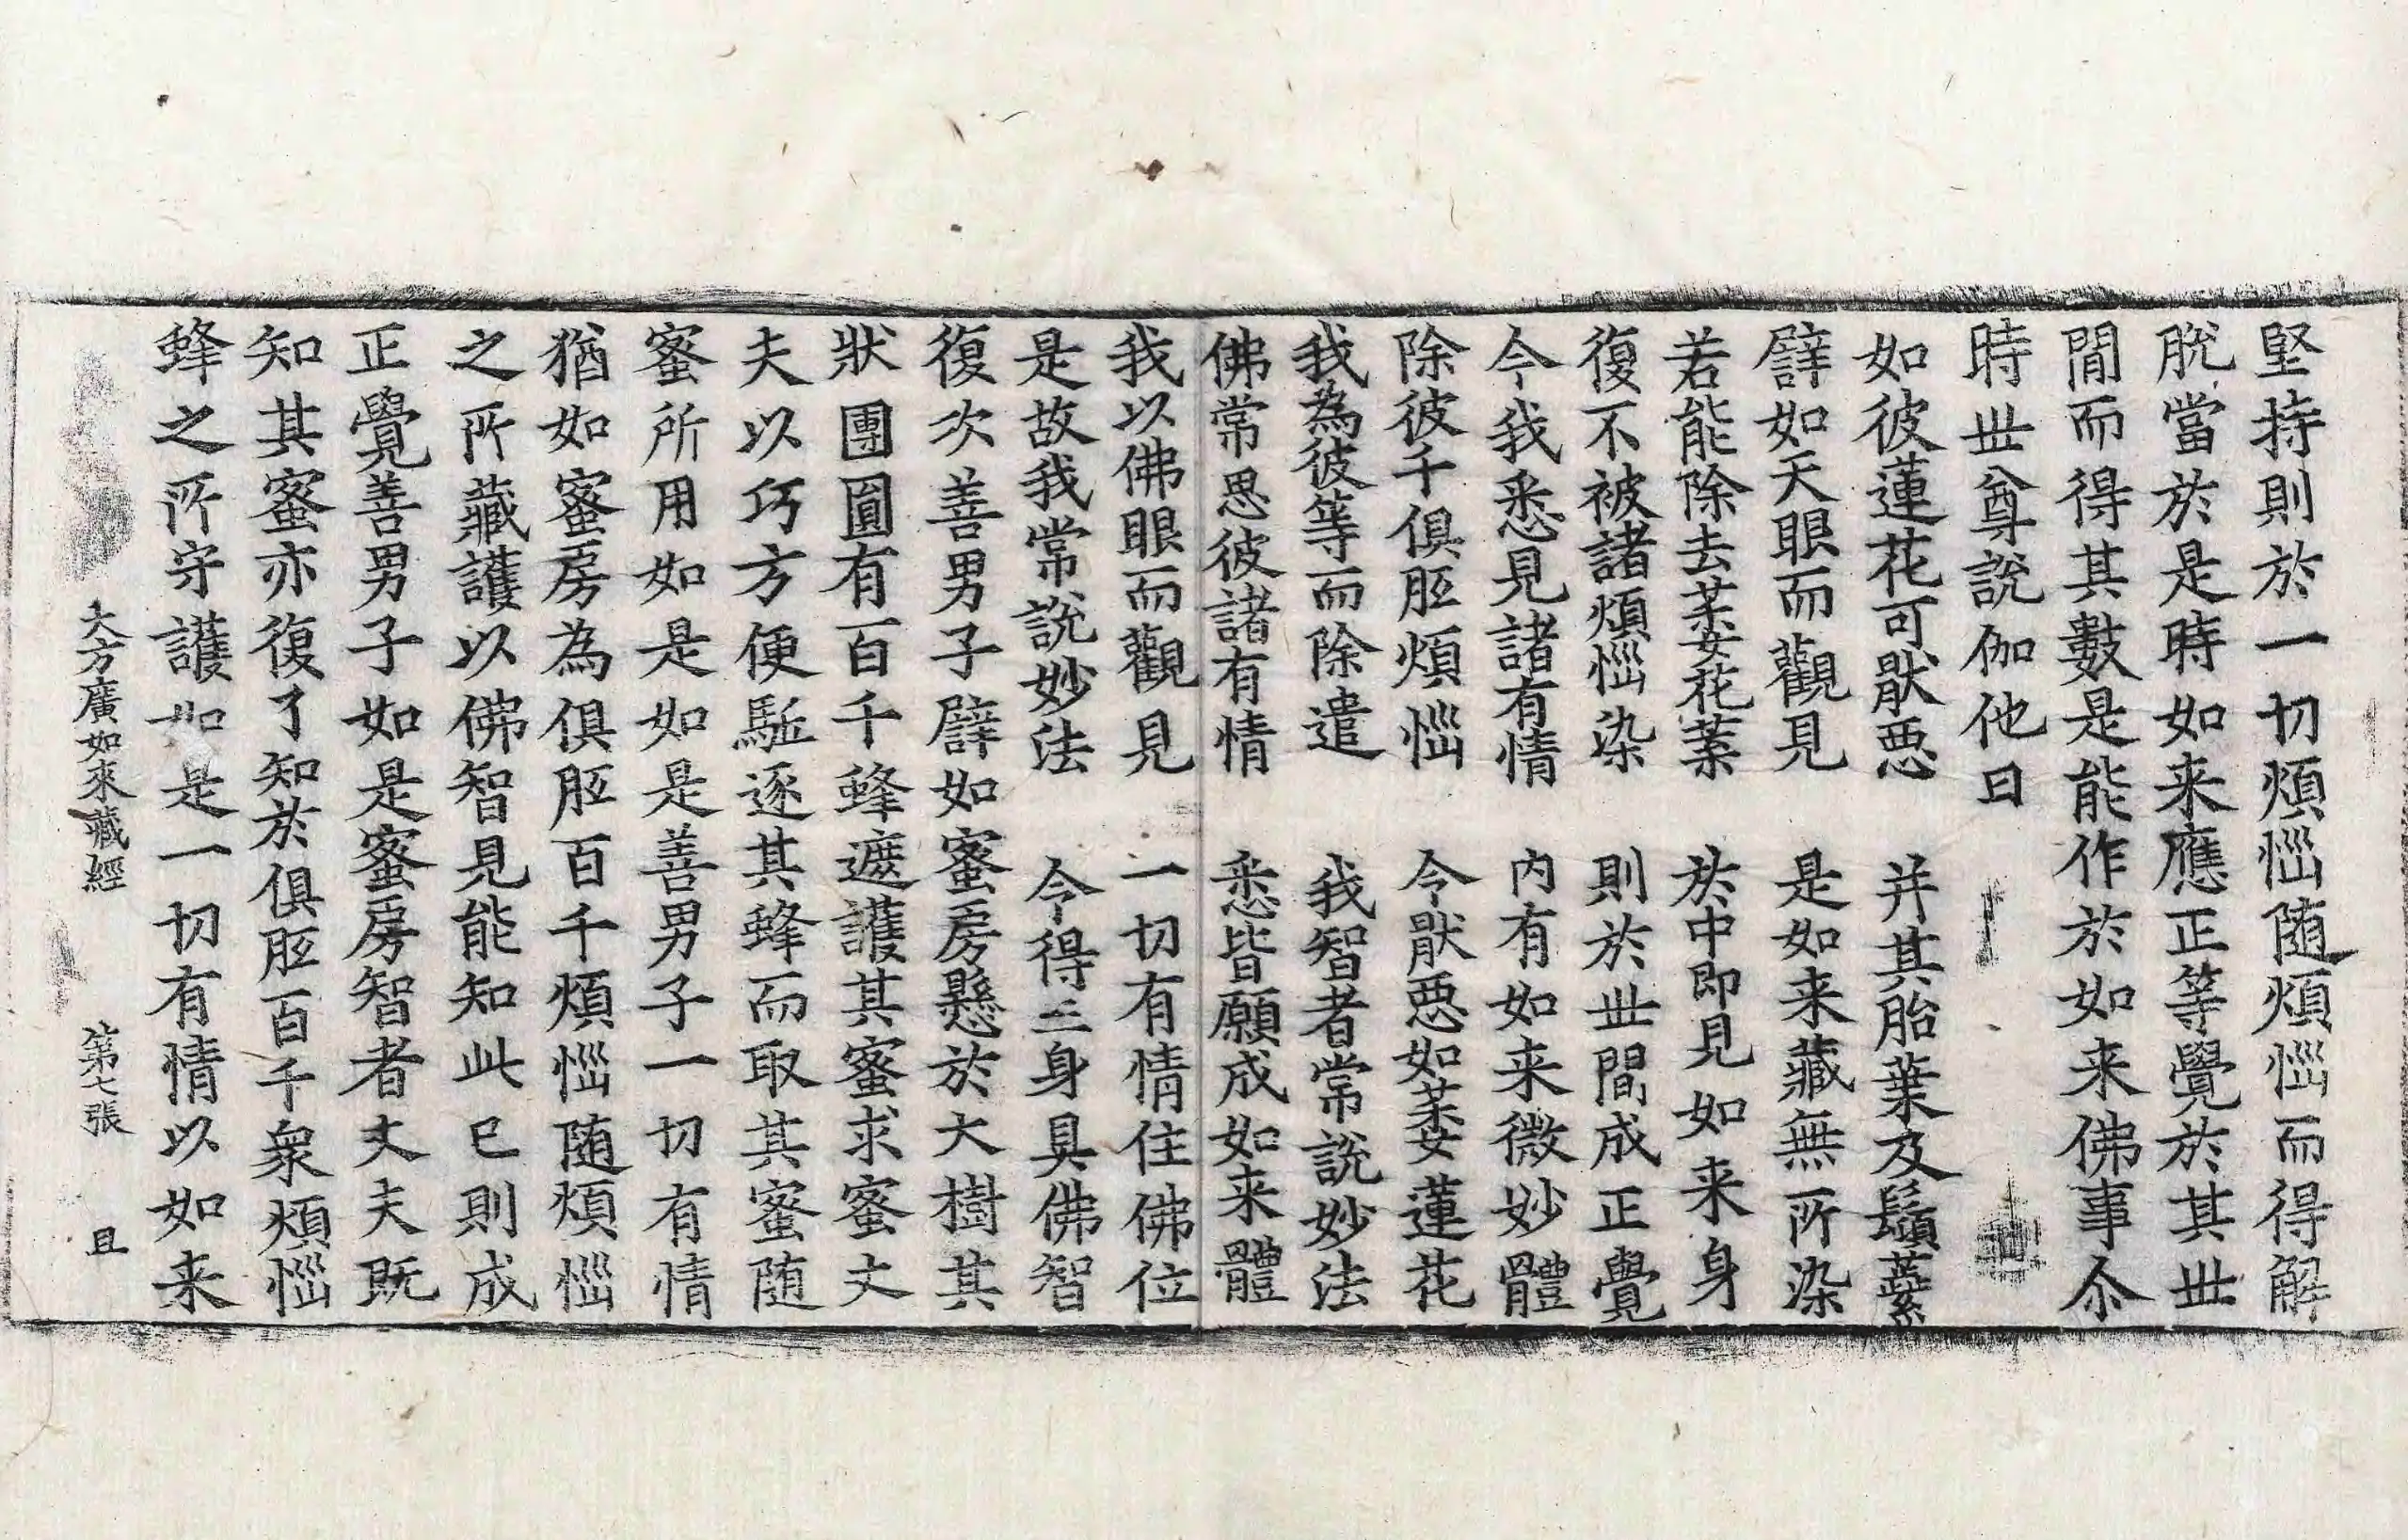 堅持則於一切煩惱随煩惱而得解
脫當於是時如来應正等覺於其世
閒而得其數是能作於如来佛事尒
時世尊說伽他曰
如彼蓮花可猒惡　并其胎葉及鬚蘂
譬如天眼而觀見　是如来藏無所染
若能除去萎花葉　於中即見如来身
復不被諸煩惱染　則於世間成正覺
今我悉見諸有情　內有如来微妙體
除彼千俱胝煩惱　今猒惡如萎蓮花
我為彼等而除遣　我智者常說妙法
佛常思彼諸有情　悉皆願成如来體
我以佛眼而觀見　一切有情住佛位
是故我常說妙法　今得三身具佛智
復次善男子譬如蜜房懸於大樹其
狀團圓有百千蜂遮護其蜜求蜜丈
夫以巧方便駈逐其蜂而取其蜜随
蜜所用如是如是善男子一切有情
猶如蜜房為俱胝百千煩惱随煩惱
之所藏護以佛智見能知此已則成
正覺善男子如是蜜房智者丈夫既
知其蜜亦復了知於俱胝百千衆煩惱
蜂之所守護如是一切有情以如来
大方廣如來藏經　第七張　且